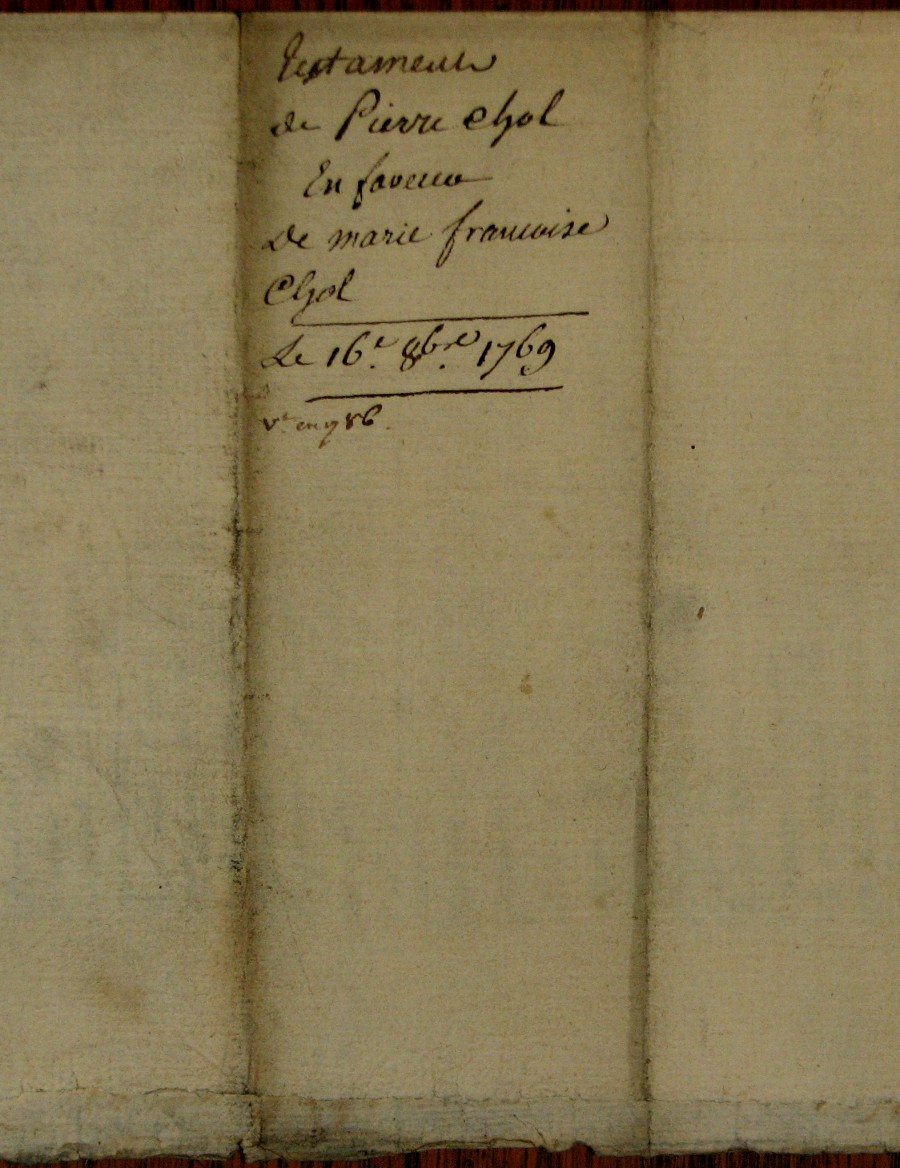 Testament
de Pierre Chol
En faveur
De marie francoise
Chol
Le 16.e 8bre. 1769